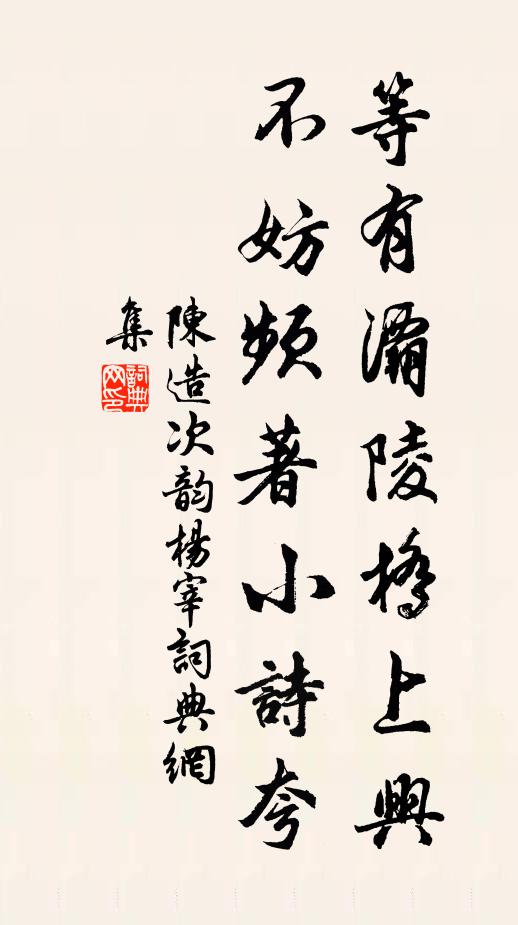 等有灞陵橋上興
不妨頻著小詩夸
陳造次韵楊宰詞典網
集
詞典网印